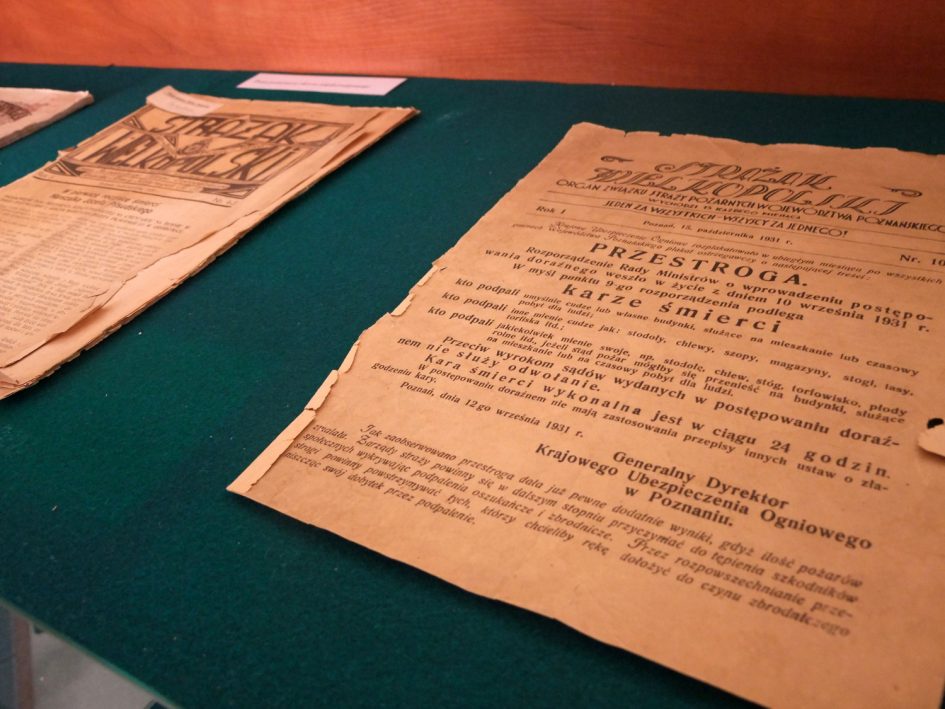 STRAŻAK
WIELKOPOLSKI
STRAŻAK
WIELKOPOLSKI
ORGAN ZWIĄZKU STRAŻY POŻARNYCH WOJEWÓDZTWA POZNAŃSKIEGO
WYCHODZI 15 KAŻDEGO MIESIĄCA
JEDEN ZA WSZYSTKICH – WSZYSCY ZA JEDNEGO!
Rok I
Poznań, 15. października 1931 r.
Nr. 10
Krajowe Ubezpieczenie Ogniowe rozplakatowało w ubiegłym miesiącu po wszystkich
gminach Województwa Poznańskiego plakat ostrzegawczy o następującej treści:
PRZESTROGA.
Rozporządzenie Rady Ministrów o wprowadzeniu postępo-
wania doraźnego weszło w życie z dniem 10 września 1931 r.
W myśl punktu 9-go rozporządzenia podlega
karze śmierci
kto podpali umyślnie cudze lub własne budynki, służące na mieszkanie lub czasowy
pobyt dla ludzi;
kto podpali inne mienie cudze jak: stodoły, chlewy, szopy, magazyny, stogi, lasy,
torfiska itd.;
kto podpali jakiekolwiek mienie swoje, np. stodołę, chlew, stóg, torfowisko, płody
rolne itd, jeżeli stąd pożar mógłby się przenieść na budynki, służące
na mieszkanie lub na czasowy pobyt dla ludzi.
Przeciw wyrokom sądów wydanych w postępowaniu doraź-
nem nie służy odwołanie.
Kara śmierci wykonalna jest w ciągu 24 godzin.
W postępowaniu doraźnem nie mają zastosowania przepisy innych ustaw o zła-
godzeniu kary.
Poznań, dnia 12-go września 1931 r.
Generalny Dyrektor
Krajowego Ubezpieczenia Ogniowego
w Poznaniu.
Jak zaobserwowano przestroga dała już pewne dodatnie wyniki, gdyż ilość pożarów
zmalała. Zarządy straży powinny się w dalszym stopniu przyczymać do tępienia szkodników
społecznych wykrywając podpalenia oszukańcze i zbrodnicze. Przez rozpowszechnianie prze-
strogi powinny powstrzymywać tych, którzy chcieliby rękę dołożyć do czynu zbrodniczego
niszcząc swój dobytek przez podpalenie.